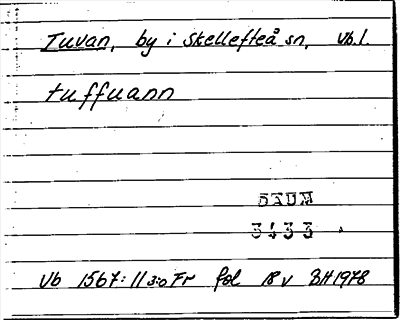 Tuvan, by i Skellefteå sn, Vb.l.
tuffuann
DAUM
3433
Vb 1567:11 3:0 Fr fol 18 v BH 1978